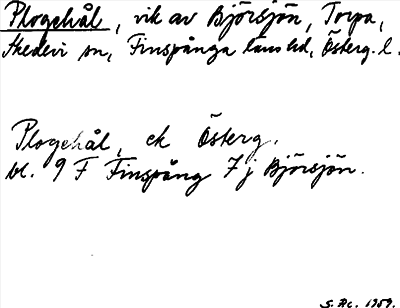 Plogehål, vik av Björsjön, Torpa,
Skedevi sn, Finspånga läns hd, Österg. l.
Plogehål, ek Österg.
bl. 9 F Finspång 7 j Björsjön.
1959.